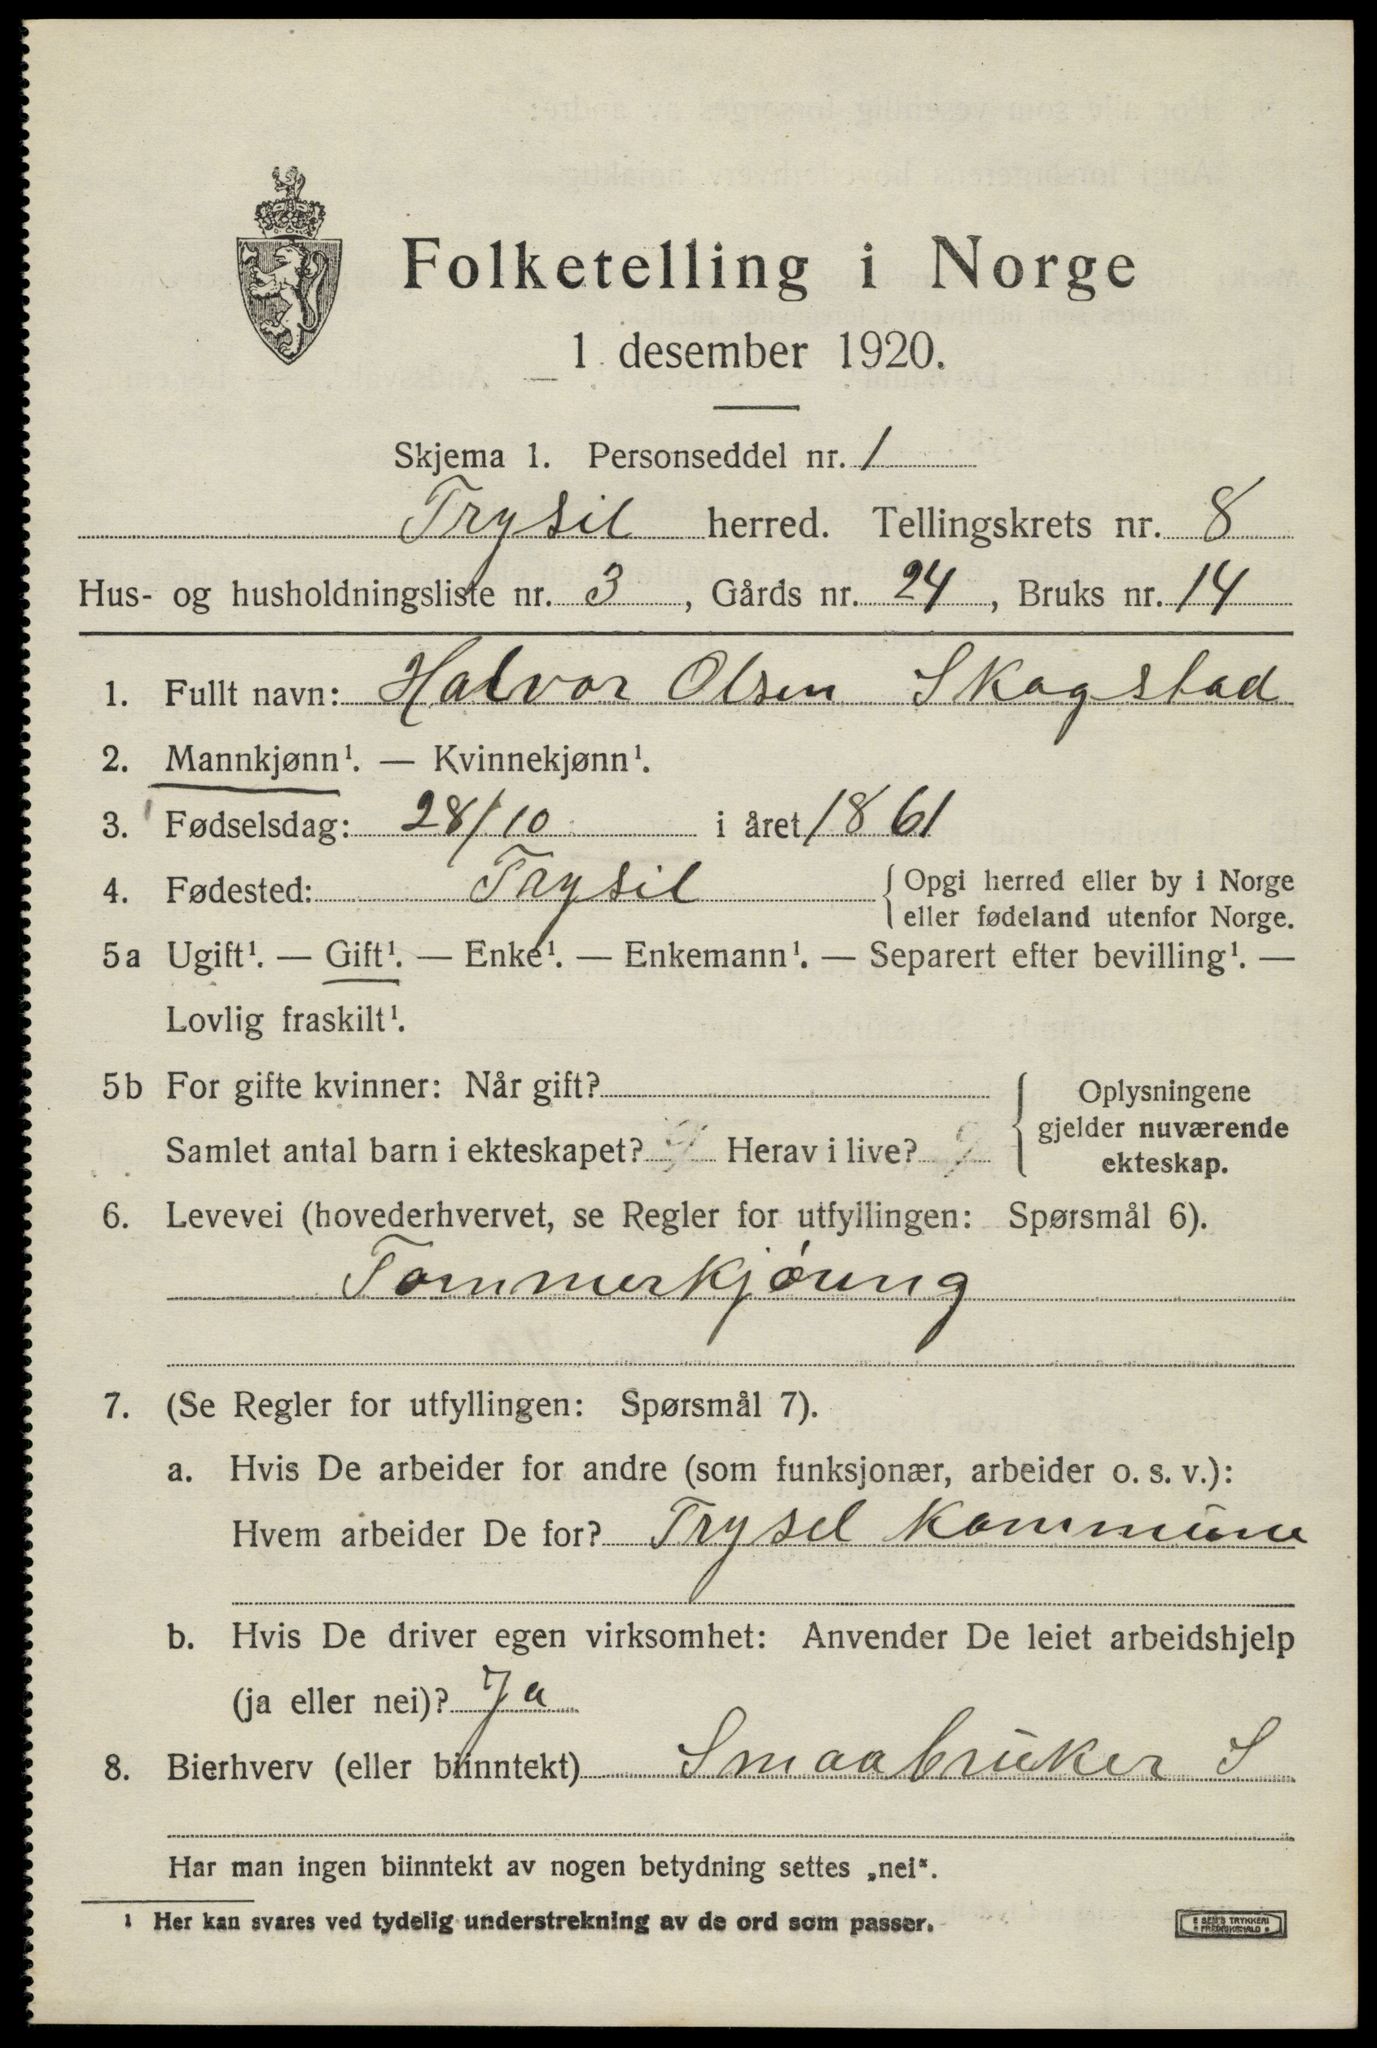 Folketelling i Norge
1 desember 1920.
Skjema 1. Personseddel nr. 1
Trysil herred. Tellingskrets nr. 8
Hus- og husholdningsliste nr. 3, Gårds nr. 24, Bruks nr. 14
1. Fullt navn: Halvor Olsen Skogstad
2. Mannkjønn¹. — Kvinnekjønn¹.
3. Fødselsdag: 28/10 i året 1861
4. Fødested: Trysil { Opgi herred eller by i Norge
eller fødeland utenfor Norge.
5a Ugift¹. — Gift¹. — Enke¹. — Enkemann¹. — Separert efter bevilling¹. —
Lovlig fraskilt¹.
5b For gifte kvinner: Når gift?
Samlet antal barn i ekteskapet? 9 Herav i live? 9
{ Oplysningene
gjelder nuværende
ekteskap.
6. Levevei (hovederhvervet, se Regler for utfyllingen: Spørsmål 6).
Tømmerkjöring
7. (Se Regler for utfyllingen: Spørsmål 7).
a. Hvis De arbeider for andre (som funksjonær, arbeider o. s. v.):
Hvem arbeider De for? Trysel Kommune
b. Hvis De driver egen virksomhet: Anvender De leiet arbeidshjelp
(ja eller nei)? Ja
8. Bierhverv (eller biinntekt) Smaabruker S
Har man ingen biinntekt av nogen betydning settes „nei“.
¹ Her kan svares ved tydelig understrekning av de ord som passer.
SEM'S TRYKKERI
FREDRIKSHALD